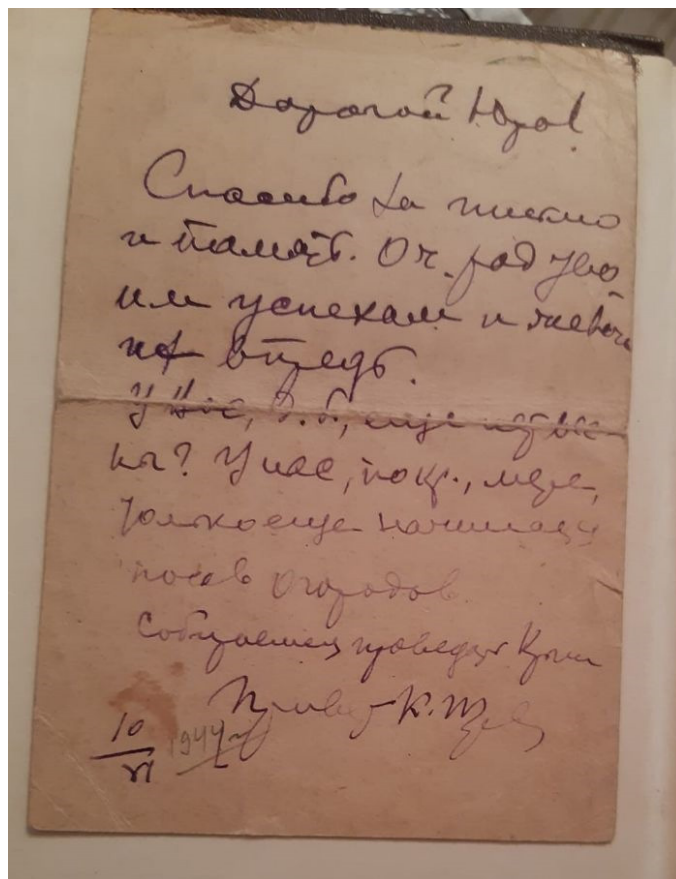 Дорогой Юра!
Спасибо за письмо
и память. Оч. рад Ува
им успехам и
впредь.
У Вас, д. б., еще
ны? У нас, по кр., мере,
только еще начинаем
посев огородов.
Собираемся проведать
Привет К.
10
VI 1944 г.